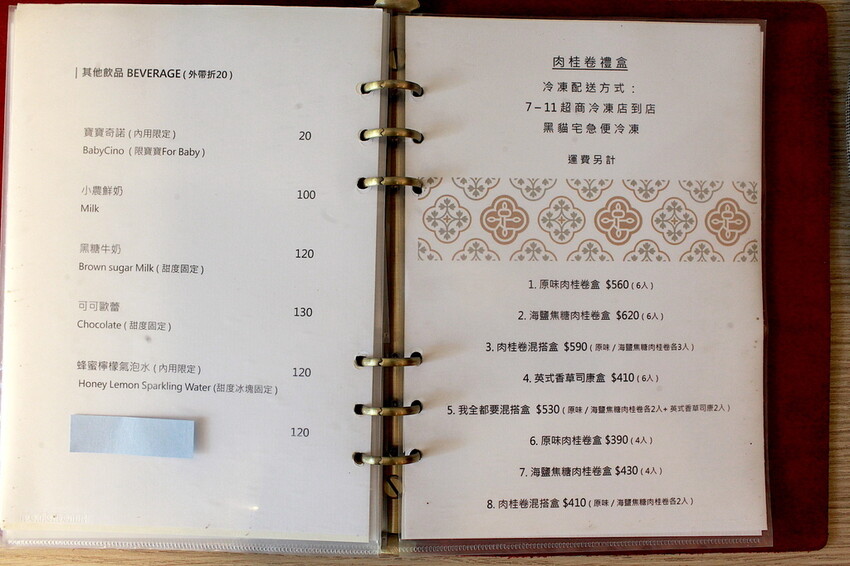 | 其他飲品 BEVERAGE ( 外帶折20 )
寶寶奇諾 ( 內用限定 ) 20
BabyCino ( 限寶寶For Baby )
小農鮮奶 100
Milk
黑糖牛奶 120
Brown sugar Milk ( 甜度固定 )
可可歐蕾 130
Chocolate ( 甜度固定 )
蜂蜜檸檬氣泡水 ( 內用限定 ) 120
Honey Lemon Sparkling Water (甜度冰塊固定 )
120
肉桂卷禮盒
冷凍配送方式：
7–11超商冷凍店到店
黑貓宅急便冷凍
運費另計
1. 原味肉桂卷盒 $560 ( 6入 )
2. 海鹽焦糖肉桂卷盒 $620 ( 6入 )
3. 肉桂卷混搭盒 $590 ( 原味 / 海鹽焦糖肉桂卷各3入 )
4. 英式香草司康盒 $410 ( 6入 )
5. 我全都要混搭盒 $530 ( 原味 / 海鹽焦糖肉桂卷各2入+ 英式香草司康2入 )
6. 原味肉桂卷盒 $390 ( 4入 )
7. 海鹽焦糖肉桂卷盒 $430 ( 4入 )
8. 肉桂卷混搭盒 $410 ( 原味 / 海鹽焦糖肉桂卷各2入 )